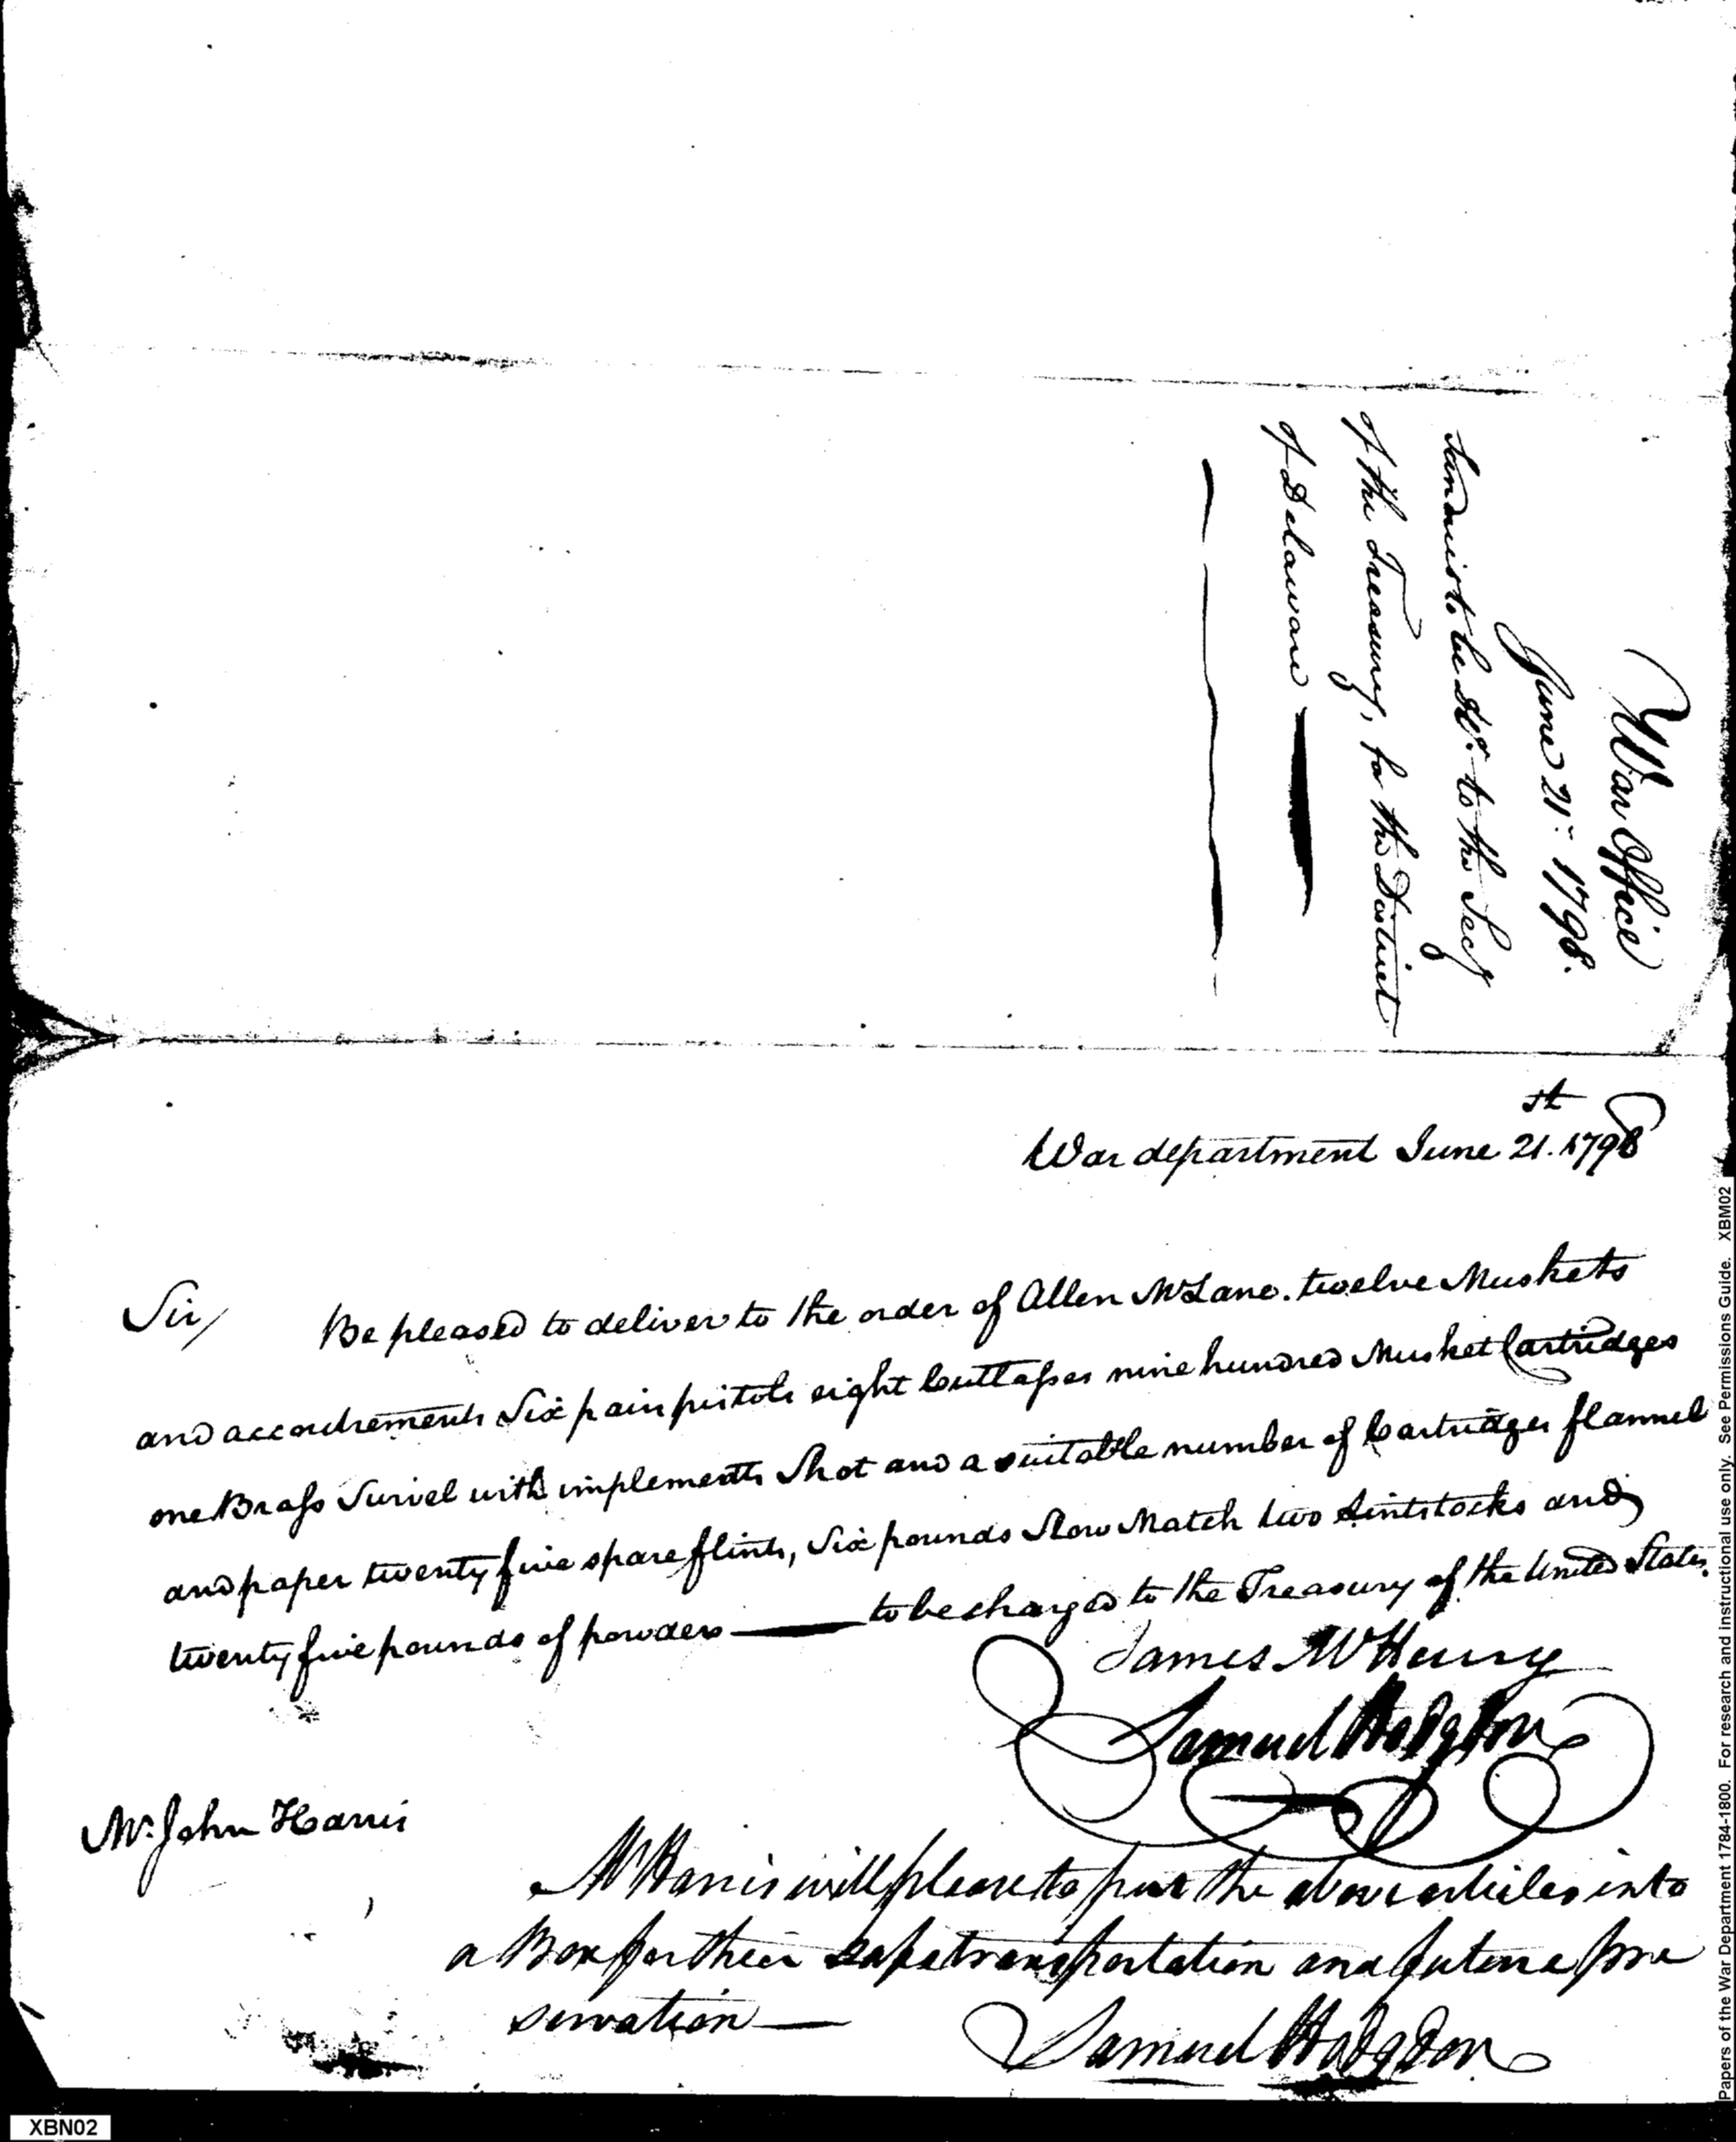 War Office
June 21st 1798.
Sundries to be Dd. to the Secy
of the Treasury, for the District
of Delaware
War department June 21st. 1798
Sir/ Be pleased to deliver to the order of Allen McLane. twelve Muskets
and accoutrements Six pair pistols eight Cuttlasses nine hundred Musket Cartridges
one Brass Swivel with implements Shot and a suitable number of Cartridges flannel
and paper twenty five spare flints, Six pounds Slow Match two Lintstocks and
twenty five pounds of powder — to be charged to the Treasury of the United States.
James McHenry
Samuel Hodgdon
Mr. John Harris
Mr Harris will please to put the above articles into
a Box for their safe transportation and future pre
servation —
Samuel Hodgdon
XBN02
Papers of the War Department 1784-1800. For research and instructional use only. See Permissions Guide. XBM02